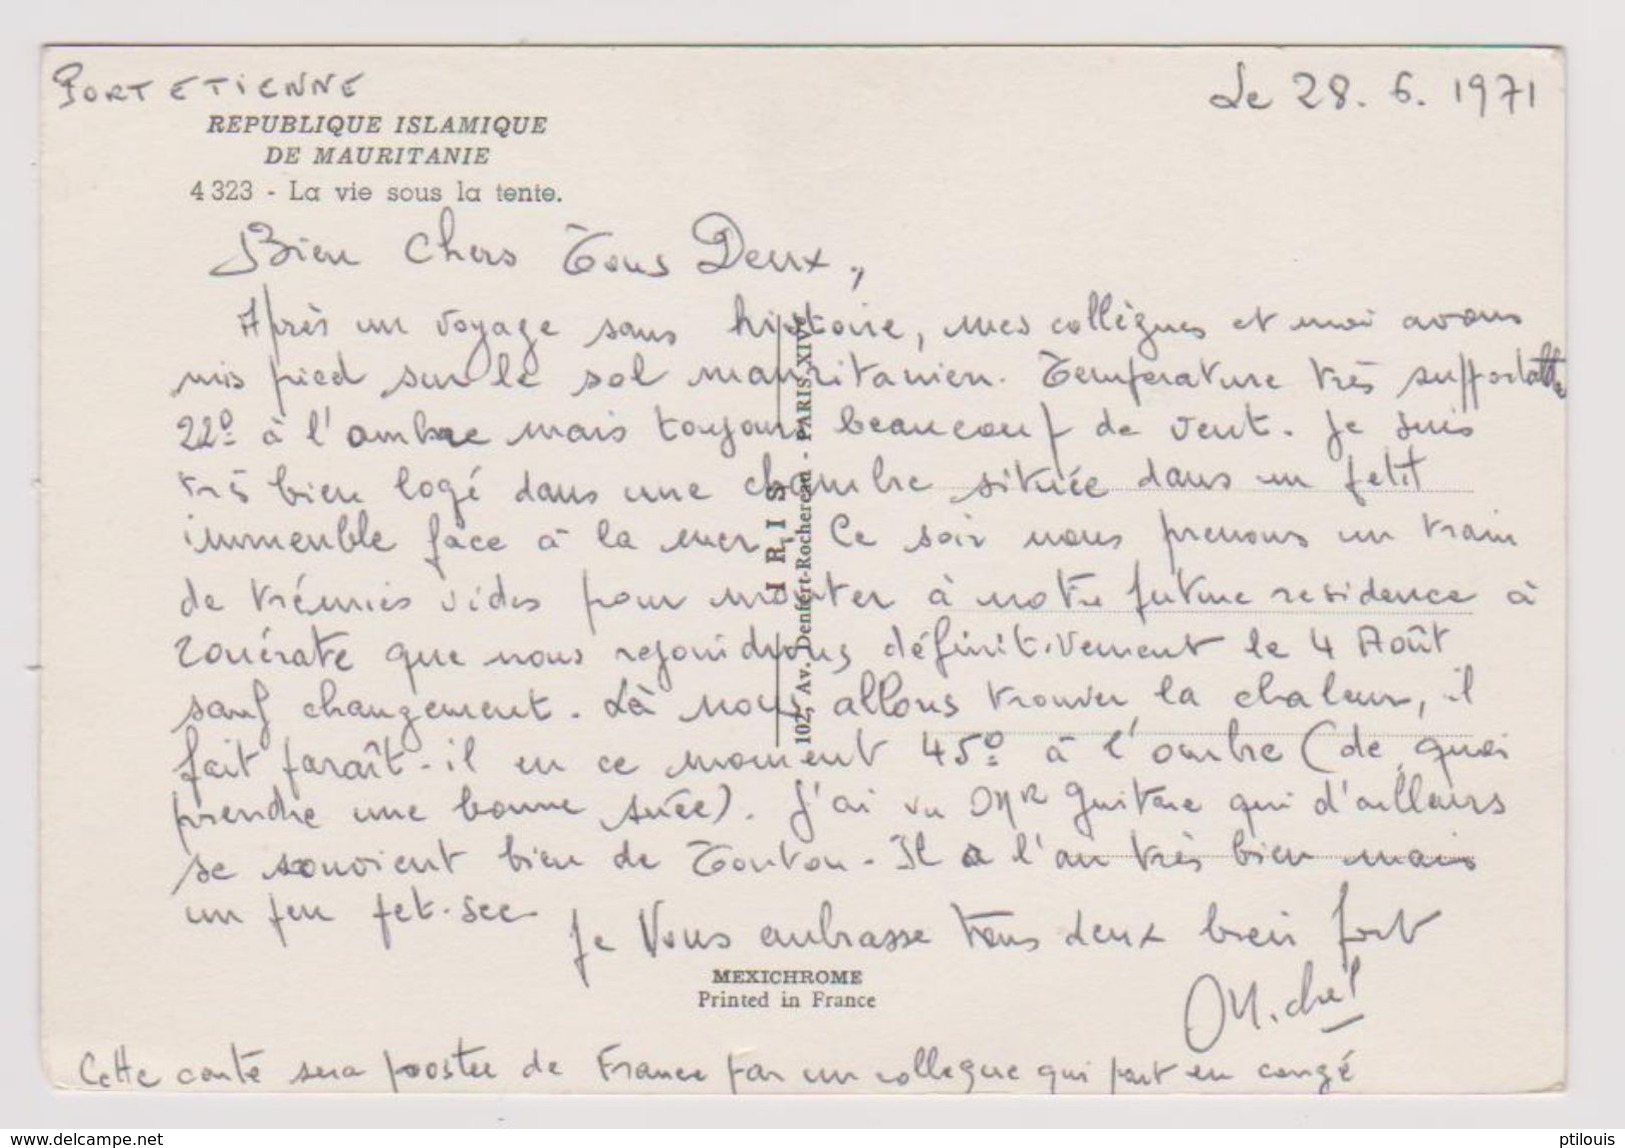 PORT ETIENNE
Le 28. 6. 1971
REPUBLIQUE ISLAMIQUE
DE MAURITANIE
4 323 - La vie sous la tente.
Bien Chers Tous Deux,
Après un voyage sans histoire, mes collègues et moi avons
mis pied sur le sol mauritanien. Température très supportable
22° à l'ombre mais toujours beaucoup de vent. Je suis
très bien logé dans une chambre située dans un petit
immeuble face à la mer. Ce soir nous prenons un train
de trémies vides pour monter à notre future residence à
Zouérate que nous rejoindrons définitivement le 4 Août
sauf changement. Là nous allons trouver la chaleur, il
fait paraît-il en ce moment 45° à l'ombre (de quoi
prendre une bonne suée). J'ai vu Mr Guitare qui d'ailleurs
se souvient bien de Tonton - Il a l'air très bien mais
un peu pet-sec
Je Vous embrasse tous deux bien fort
Michel
IRIS
102, Av. Denfert-Rochereau - PARIS-XIVe
MEXICHROME
Printed in France
Cette carte sera postée de France par un collegue qui part en congé
www.delcampe.net
ptilouis